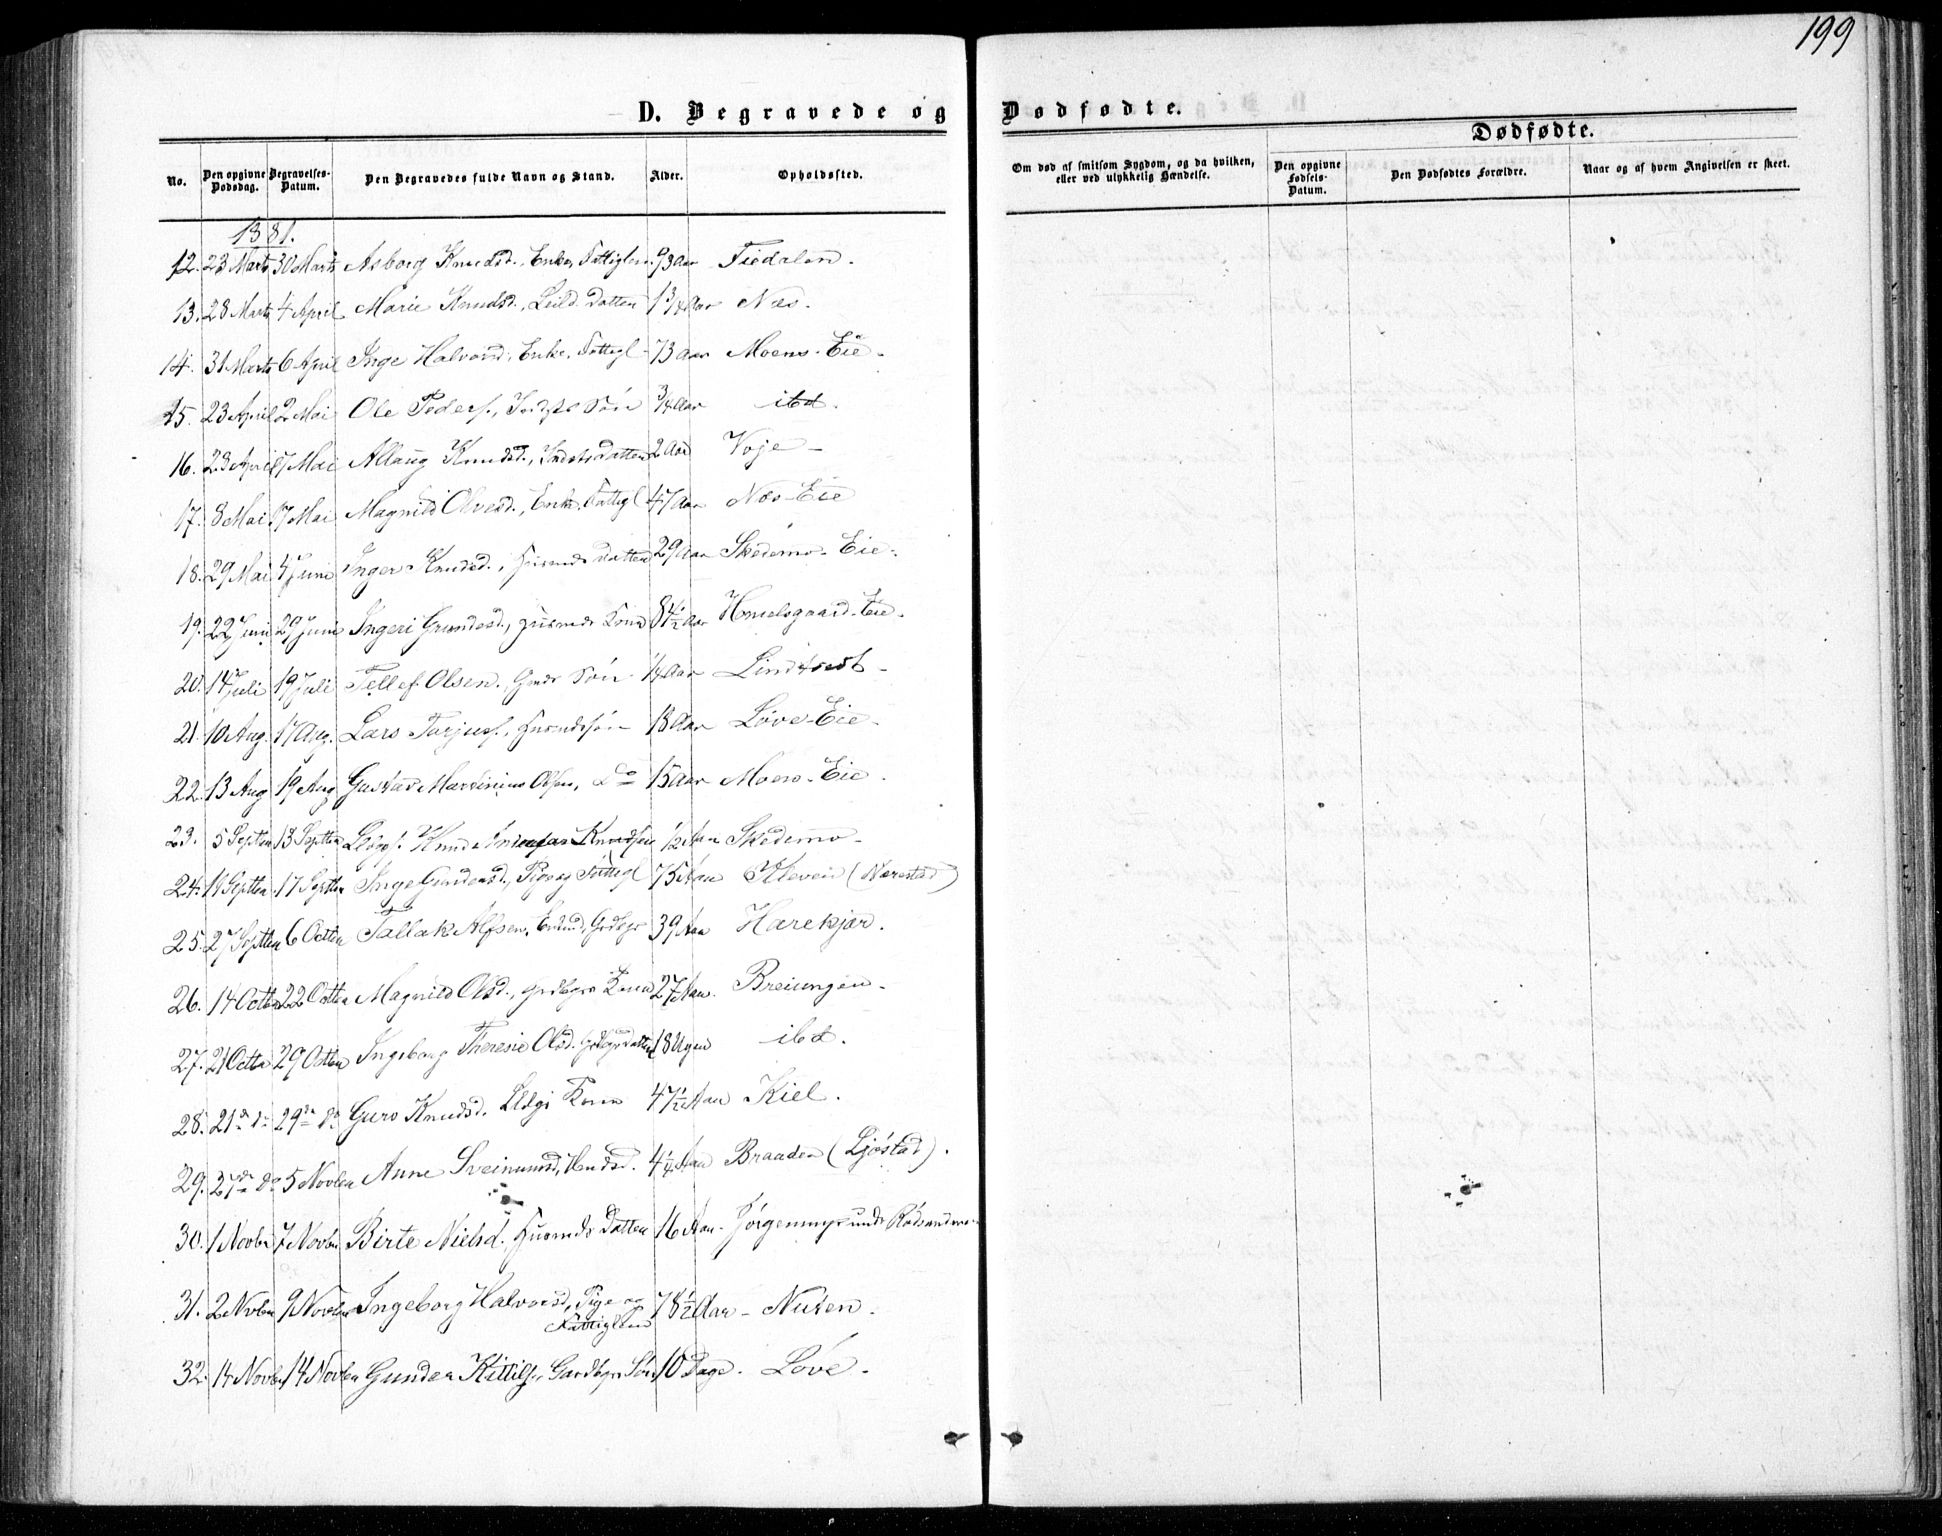 199
D. Begravede og Dødfødte.
Dødfødte.
No. Den opgivne Dødsdag. Begravelses-Datum. Den Begravedes fulde Navn og Stand. Alder. Opholdssted. Om død af smitsom Sygdom, og da hvilken, eller ved ulykkelig Hændelse. Den opgivne Fødsels-Datum. Den Dødfødtes Forældre. Naar og af hvem Angivelsen er skeet.
1881.
12. 23 Marts 30 Marts Asborg Knudsd., Enke, Fattiglem Aar Fiedalen.
13. 28 Marts 4 April Marie Knudsd., Leild. Datten 1 3/4 Aar Næs.
14. 31 Marts 6 April Inge Halvorsd., Enke, Fattigl 73 Aar Moens-Eie.
15. 23 April 2 Mai Ole Peders., Indsts Søn 3/4 Aar ibd.
16. 23 April 7 Mai Allaug Knudsd., Indstsdatten 2 Aar Voje
17. 8 Mai 17 Mai Magnild Olvesd., Enke, Fattigl 47 Aar Næs-Eie
18. 29 Mai 4 Juni Inger Knudsd., Husmds Datten 29 Aar Skedsmo-Eie.
19. 22 Juni 29 Juni Ingeri Gundesd., Husmds Kone 84 1/2 Aar Hovelsgaard-Eie.
20. 14 Juli 19 Juli Tellef Olsen., Gmds Søn 1/4 Aar Lindtvedt
21. 10 Aug. 17 Aug. Lars Tarjus., Husmdssøn 18 Aar Løve-Eie.
22. 13 Aug 19 Aug Gustav Martinius Olsen, Do 15 Aar Moens-Eie.
23. 5 Septen 13 Septten Knud Knudsen 1/2 Aar Skedemo
24. 11 Septten 17 Septten Inge Gundersd., Pige og Fattigl 75 Aar Kleven (Nærestad)
25. 27 Septten 6 Octten Tallak Alfsen, Enkmd, Grdbgr 39 Aar Harekjær.
26. 14 Octten 22 Octten Magnild Olsd., Grdbgrs Kone 27 Aar. Breiungen
27. 21 Octten 29 Octten Ingeborg Theresie Olsd. Grdbgrsdatten 18 Ugen ibd.
28. 21de do 29de do Guro Knudsd. Kone 47 1/2 Aar Kiel.
29. 27de do 5 Novben Anne Sveinumsd, Husd. 4 1/4 Aar Braaden (Ljøstad).
30. 1 Novbr 7 Novbr Birte Nielsd. Husmds Datten 16 Aar. Jørgenmyr unde Rødsanderen
31. 2 Nvbn 9 Novbn Ingeborg Halvorsd, Pige og 78 1/2 Aar Nuten.
Fattiglem
32. 14 Novbn 14 Novbn Gunder Kittils., Gardbgr Søn 10 Dage. Løve.